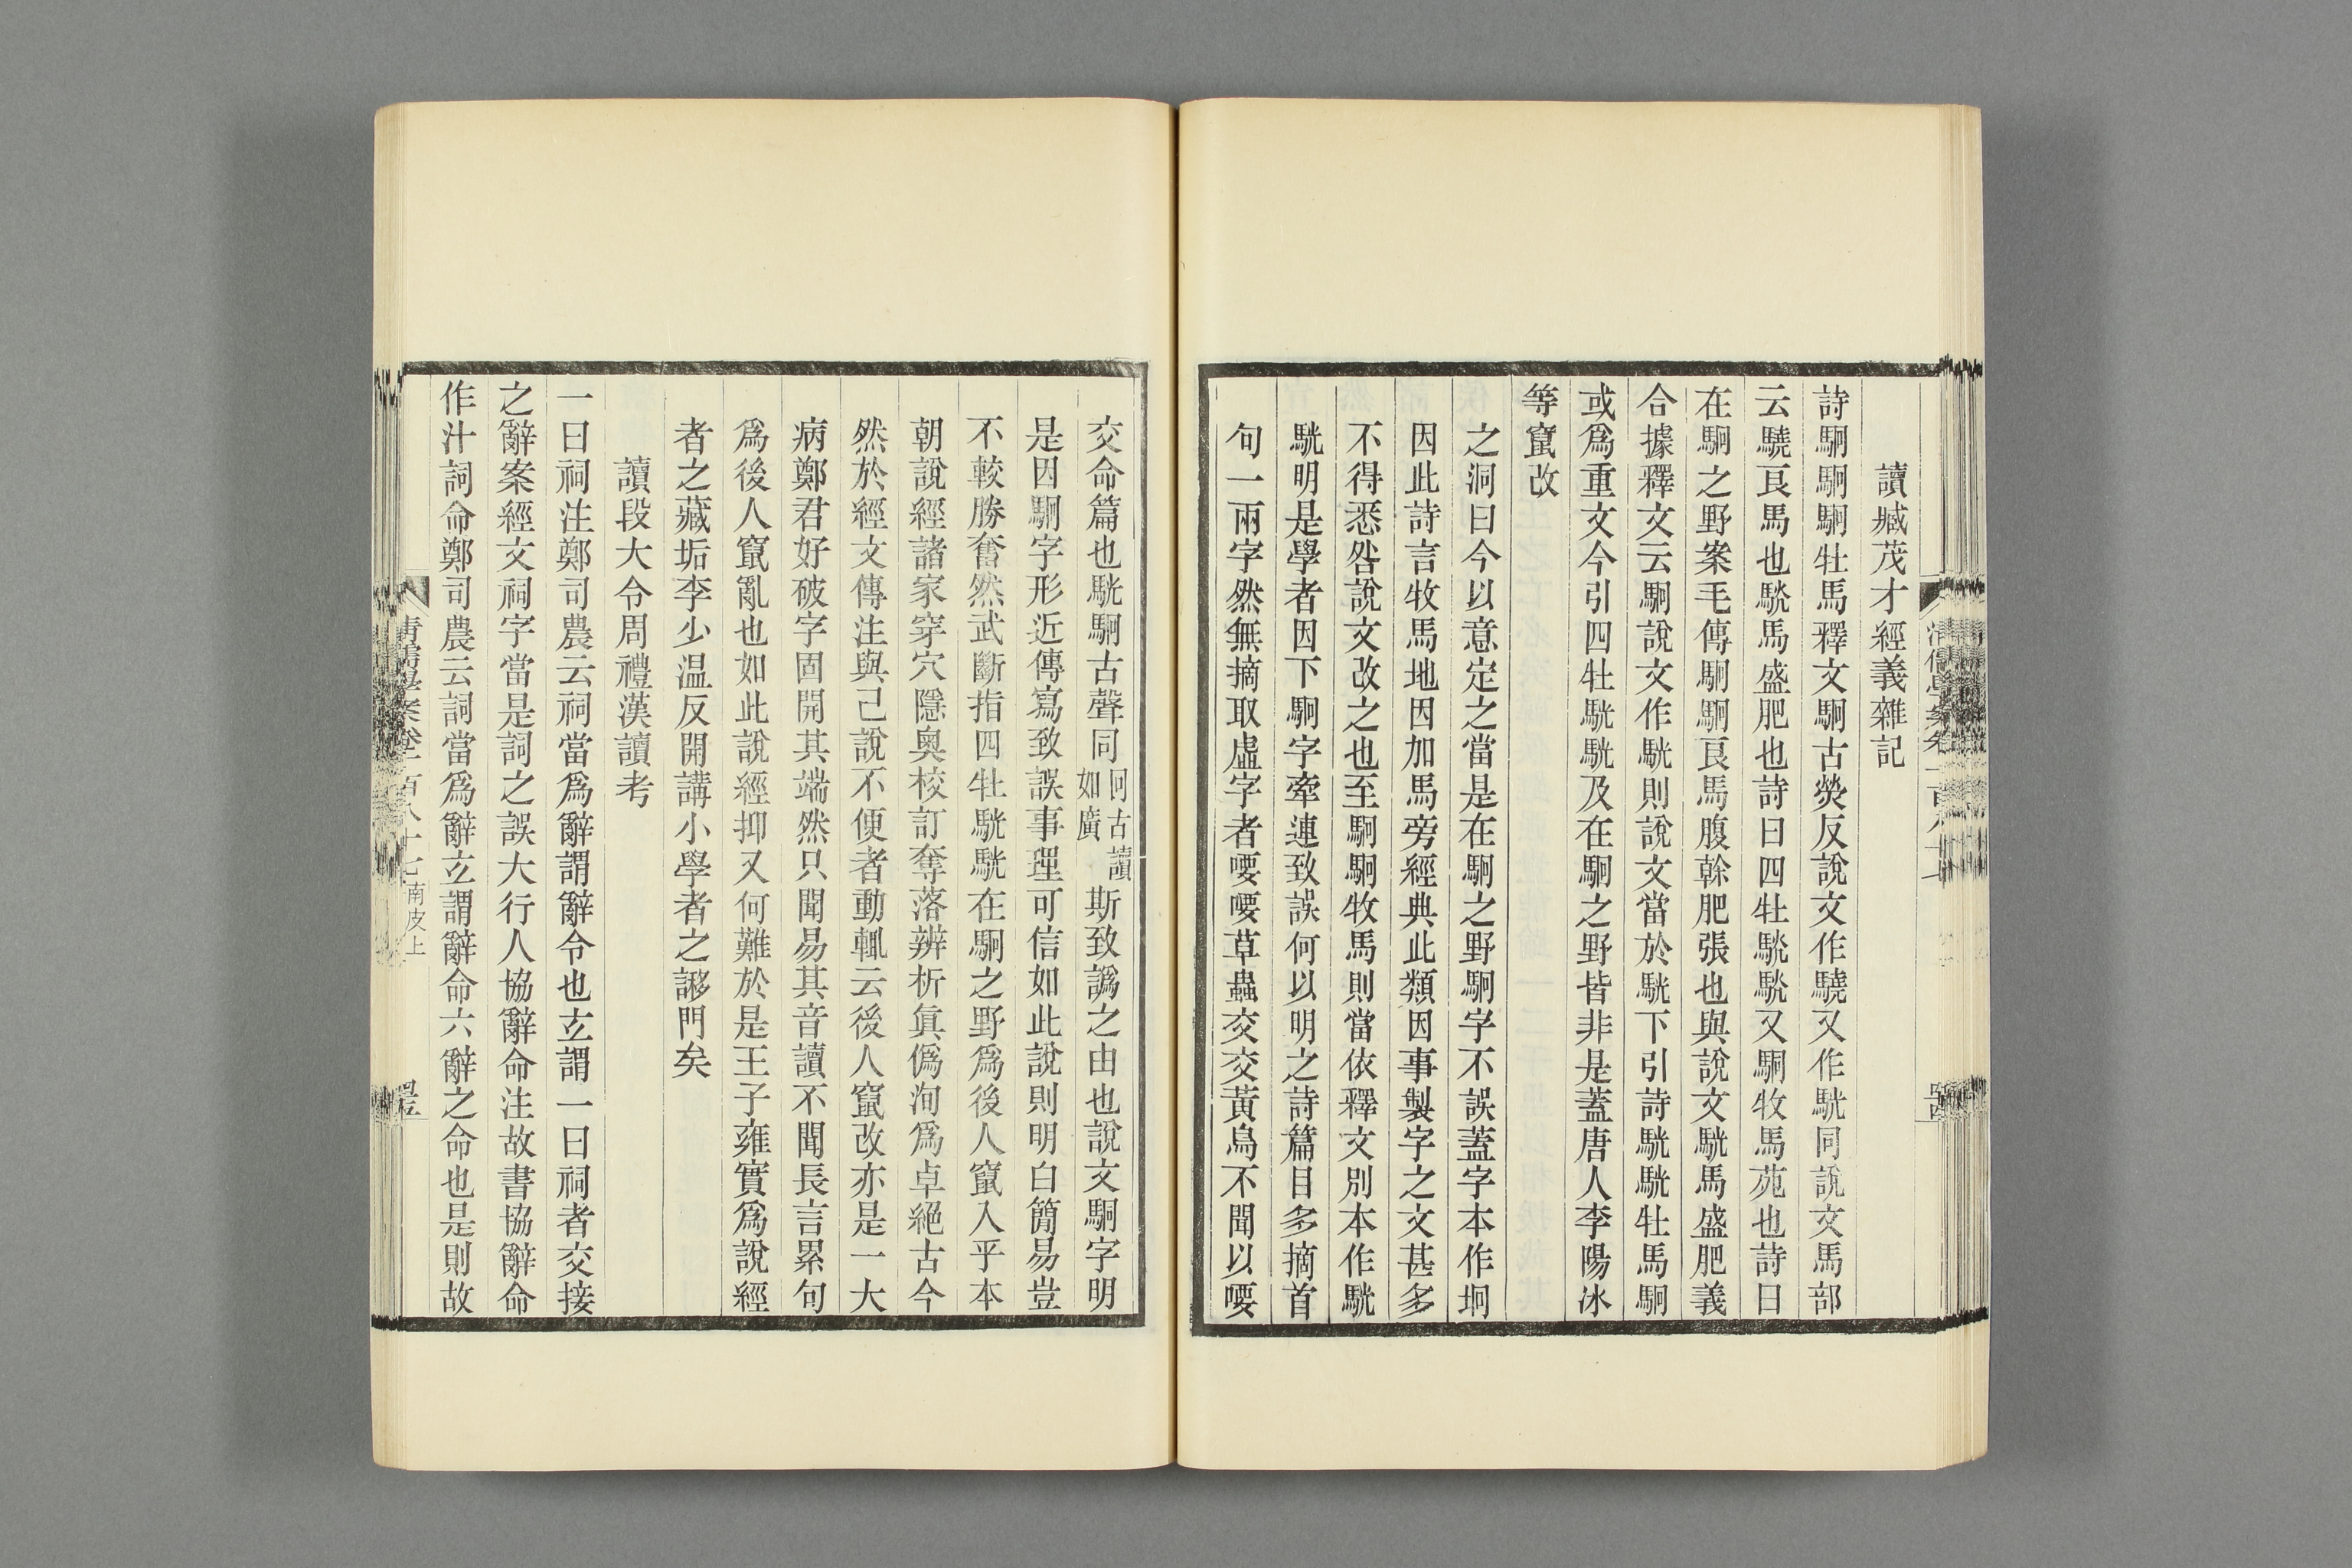 讀臧茂才經義雜記
詩駉駉駉牡馬釋文駉古熒反說文作驍又作駫同說文馬部
云驍良馬也駫馬盛肥也詩曰四牡駫駫又駉牧馬苑也詩曰
在駉之野案毛傳駉駉良馬腹榦肥張也與說文駫馬盛肥義
合據釋文云駉說文作駫則說文當於駫下引詩駫駫牡馬駉
或爲重文今引四牡駫駫及在駉之野皆非是蓋唐人李陽冰
等竄改
之洞曰今以意定之當是在駉之野駉字不誤蓋字本作坰
因此詩言牧馬地因加馬旁經典此類因事製字之文甚多
不得悉咎說文改之也至駉駉牧馬則當依釋文別本作駫
駫明是學者因下駉字牽連致誤何以明之詩篇目多摘首
句一兩字然無摘取虛字者喓喓草蟲交交黃鳥不聞以喓
交命篇也駫駉古聲同冋古讀如廣斯致譌之由也說文駉字明
是因駉字形近傳寫致誤事理可信如此說則明白簡易豈
不較勝奮然武斷指四牡駫駫在駉之野爲後人竄入乎本
朝說經諸家穿穴隱奧校訂奪落辨析眞僞洵爲卓絕古今
然於經文傳注與己說不便者動輒云後人竄改亦是一大
病鄭君好破字固開其端然只聞易其音讀不聞長言累句
爲後人竄亂也如此說經抑又何難於是王子雍實爲說經
者之藏垢李少温反開講小學者之謻門矣
讀段大令周禮漢讀考
一曰祠注鄭司農云祠當爲辭謂辭令也玄謂一曰祠者交接
之辭案經文祠字當是詞之誤大行人協辭命注故書協辭命
作汁詞命鄭司農云詞當爲辭玄謂辭命六辭之命也是則故
清儒學案卷一百八十七南皮上